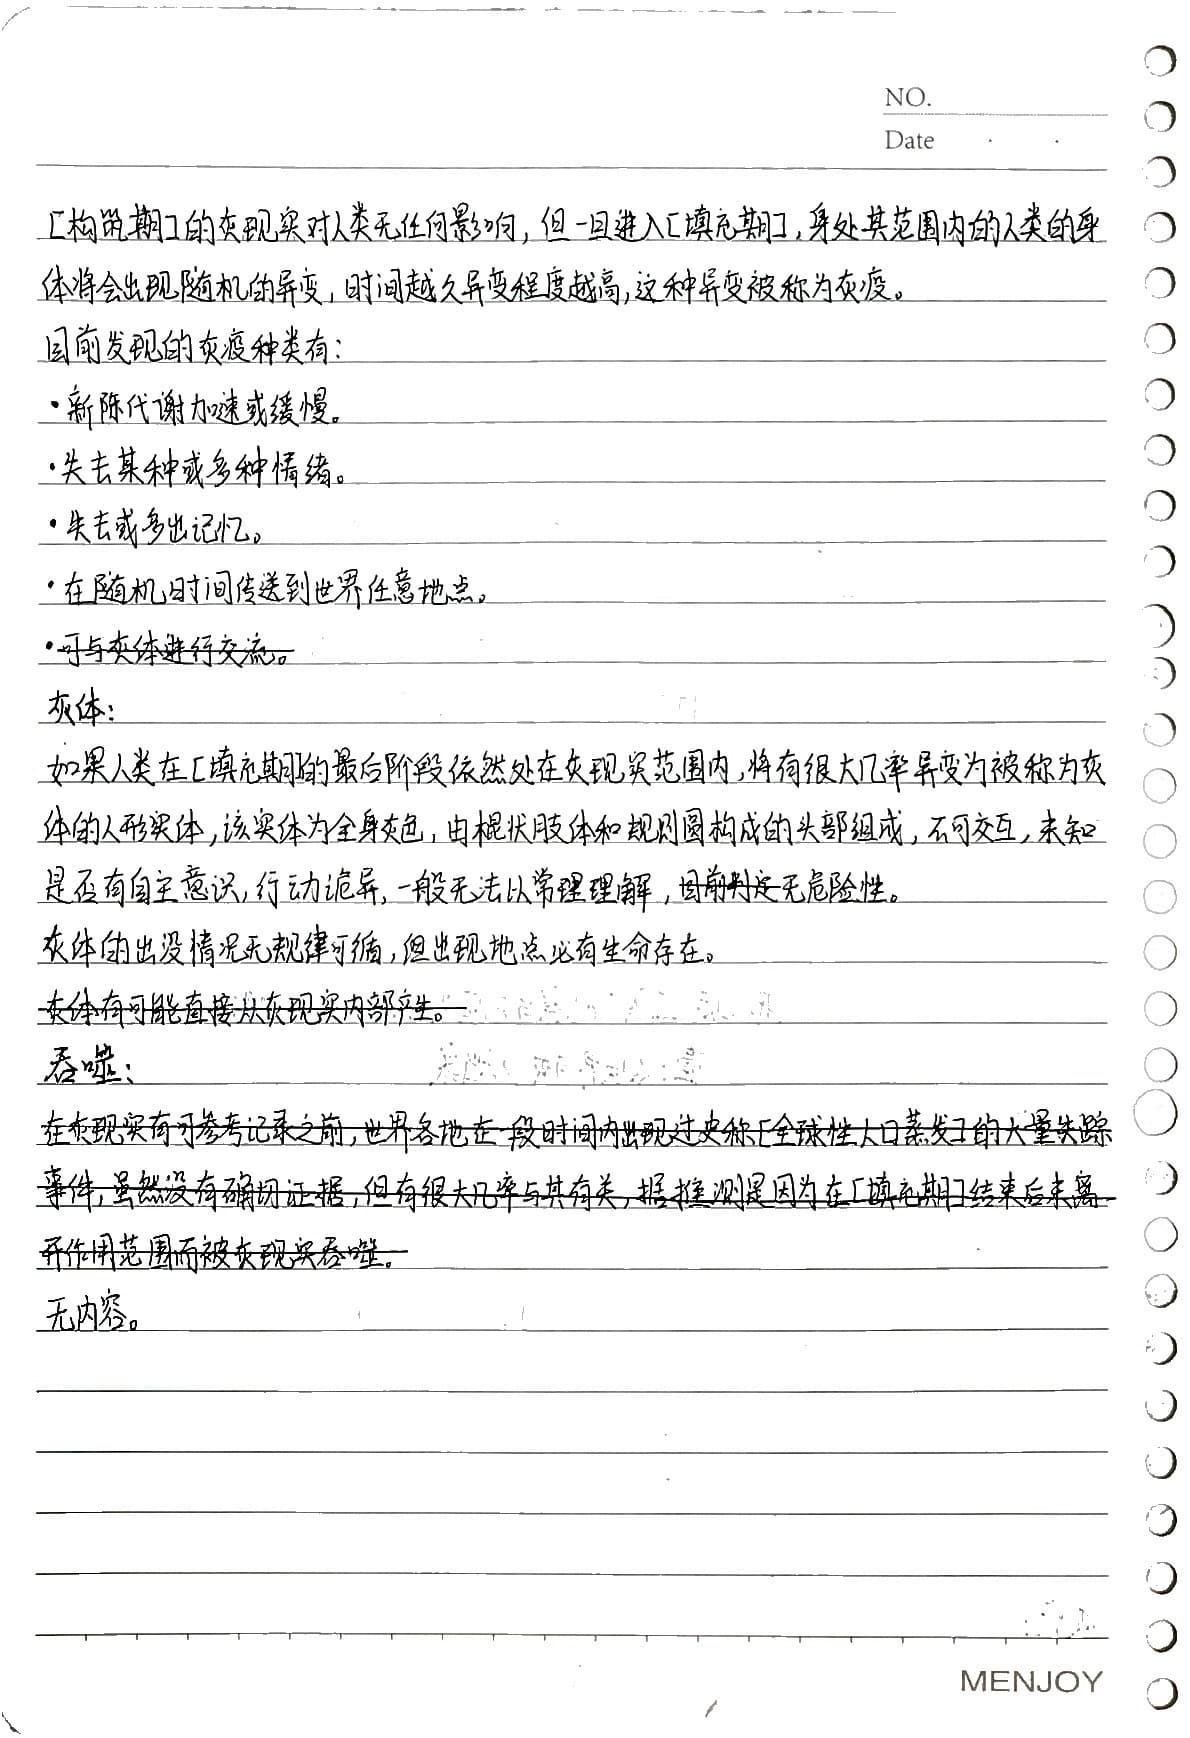 NO.
Date
[构筑期]的灰现实对人类无任何影响，但一旦进入[填充期]，身处其范围内的人类的身
体将会出现随机的异变，时间越久异变程度越高，这种异变被称为灰疫。
目前发现的灰疫种类有：
·新陈代谢加速或缓慢。
·失去某种或多种情绪。
·失去或多出记忆。
·在随机时间传送到世界任意地点。
·可与灰体进行交流。
灰体：
如果人类在[填充期]的最后阶段依然处在灰现实范围内，将有很大几率异变为被称为灰
体的人形实体，该实体为全身灰色，由棍状肢体和规则圆构成的头部组成，不可交互，未知
是否有自主意识，行动诡异，一般无法以常理理解，目前判定无危险性。
灰体的出没情况无规律可循，但出现地点必有生命存在。
灰体有可能直接从灰现实内部产生。
吞噬：
在灰现实有可参考记录之前，世界各地在一段时间内出现过史称[全球性人口蒸发]的大量失踪
事件，虽然没有确切证据，但有很大几率与其有关，据推测是因为在[填充期]结束后未离
开作用范围而被灰现实吞噬。
无内容。
MENJOY